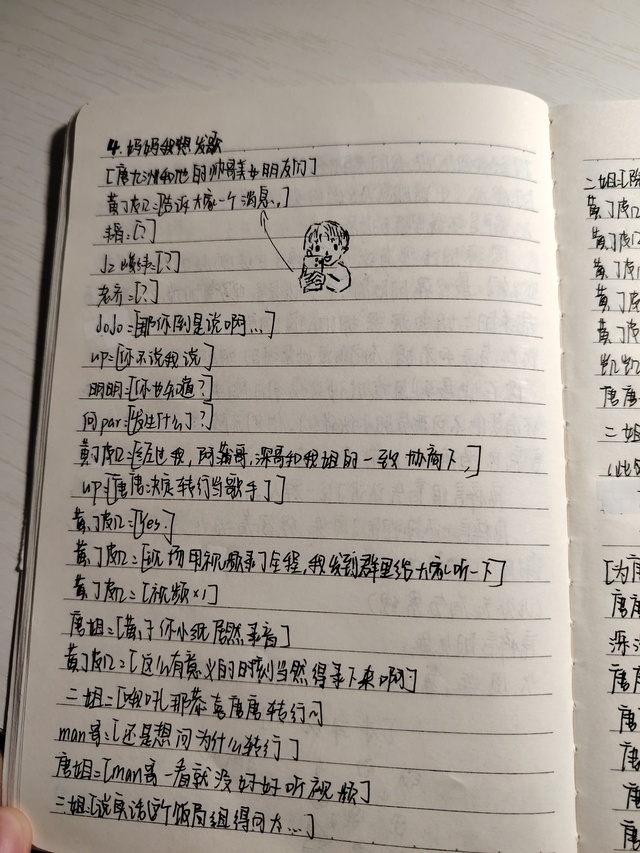 4. 妈妈我想发歌
[唐九洲和他的帅哥美女朋友们]
黄丁皮口=[告诉大家一个消息。]
=[?]
=[?]
老齐=[?]
dodo=[那你倒是说啊...]
up=[你不说我说]
明明=[你也知道?]
问par=[发生什么了?]
黄丁皮口=[经过我,阿蒲哥,深哥和我姐的一致协商下,]
up=[唐唐决定转行当歌手了]
黄丁皮口=[Yes.]
黄丁皮口=[现场用视频录了全程,我发到群里给大家听一下]
黄丁皮口=[视频×1]
唐姐=[黄子你小纸居然录音]
黄丁皮口=[这么有意义的时刻当然得录下来啊]
二姐=[哦吼那恭喜唐唐转行~]
man哥=[还是想问为什么转行]
唐姐=[man哥一看就没好好听视频]
三姐=[说实话这个饭局组得问太...]
二姐=[
黄丁皮口
黄丁皮
黄丁皮
黄丁
黄丁皮
凯凯
唐唐
二姐
[为唐
唐唐
深深
唐唐
唐
唐唐
唐
唐
唐